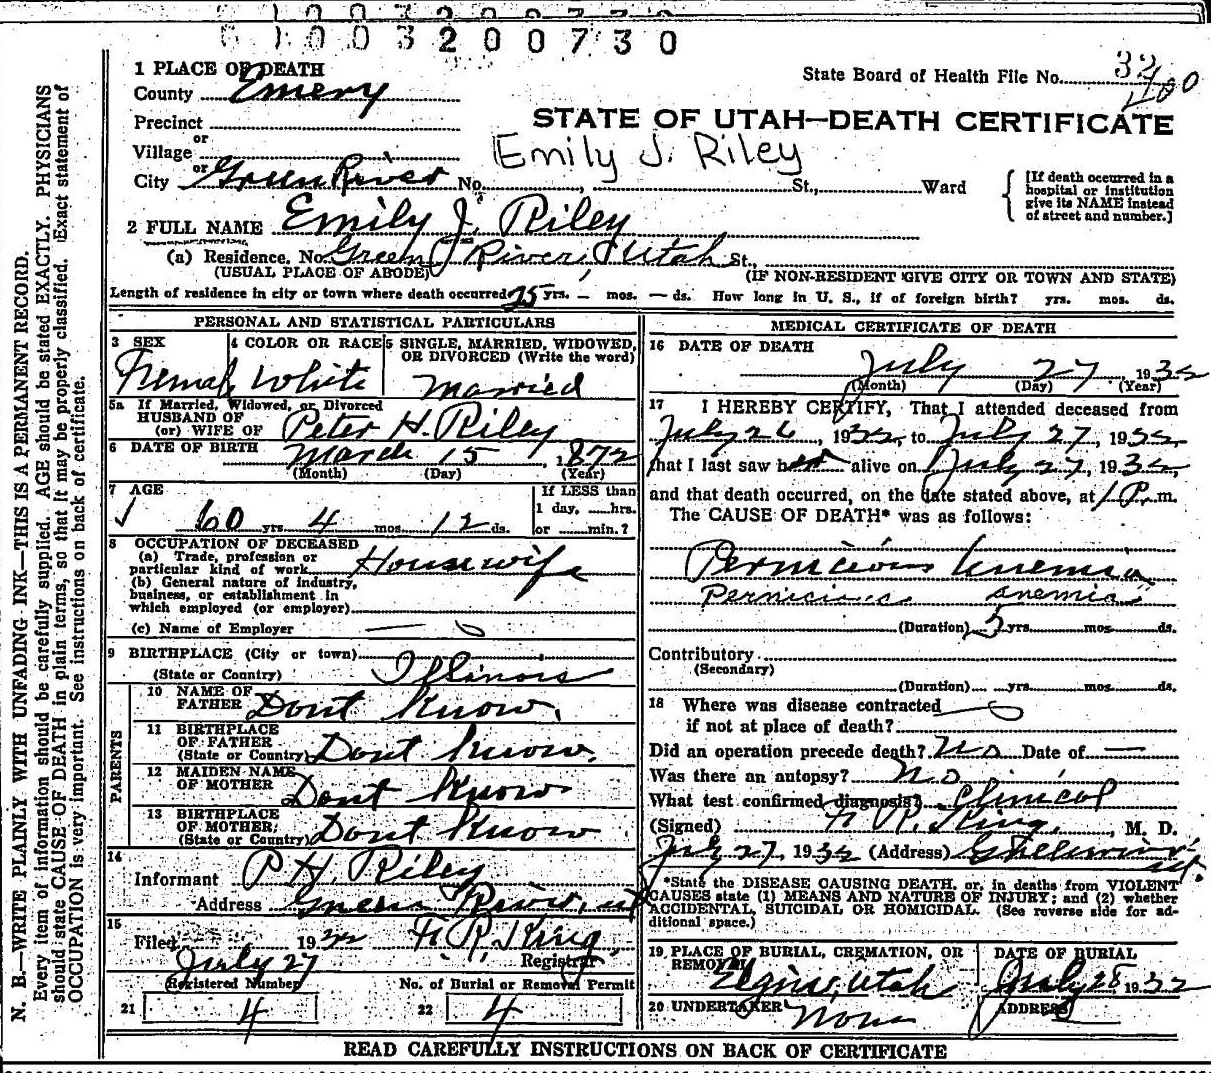 6 1 0 0 3 2 0 0 7 3 0
1 PLACE OF DEATH
County Emery
State Board of Health File No. 32 400
Precinct
STATE OF UTAH—DEATH CERTIFICATE
or
Village
Emily J. Riley
or
City Green River No. St., Ward
[If death occurred in a hospital or institution give its NAME instead of street and number.]
2 FULL NAME Emily J. Riley
(a) Residence. No. Green River, Utah St.,
(USUAL PLACE OF ABODE) (IF NON-RESIDENT GIVE CITY OR TOWN AND STATE)
Length of residence in city or town where death occurred 25 yrs. – mos. – ds. How long in U. S., if of foreign birth? yrs. mos. ds.
PERSONAL AND STATISTICAL PARTICULARS
3 SEX
Female
4 COLOR OR RACE
White
5 SINGLE, MARRIED, WIDOWED,
OR DIVORCED (Write the word)
Married
5a If Married, Widowed, or Divorced
HUSBAND OF
(or) WIFE OF Peter H. Riley
6 DATE OF BIRTH March 15, 1872
(Month) (Day) (Year)
7 AGE
60 yrs 4 mos. 12 ds.
If LESS than
1 day, hrs.
or min.?
8 OCCUPATION OF DECEASED
(a) Trade, profession or
particular kind of work Housewife
(b) General nature of industry,
business, or establishment in
which employed (or employer)
(c) Name of Employer — o
9 BIRTHPLACE (City or town)
(State or Country) Illinois
PARENTS
10 NAME OF
FATHER Dont Know.
11 BIRTHPLACE
OF FATHER
(State or Country) Dont Know.
12 MAIDEN NAME
OF MOTHER Dont Know
13 BIRTHPLACE
OF MOTHER
(State or Country) Dont Know
14
Informant P H. Riley
Address Green River, ut
15
Filed July 27 1932 Registrar
Registered Number No. of Burial or Removal Permit
21 4 22 4
MEDICAL CERTIFICATE OF DEATH
16 DATE OF DEATH
July 27, 1932
(Month) (Day) (Year)
17 I HEREBY CERTIFY, That I attended deceased from
July 26, 1932, to July 27, 1932,
that I last saw her alive on July 27, 1932,
and that death occurred, on the date stated above, at 1 P. m.
The CAUSE OF DEATH* was as follows:
Pernicious Anemia
Pernicious anemia
(Duration) 5 yrs. mos. ds.
Contributory
(Secondary)
(Duration) yrs. mos. ds.
18 Where was disease contracted
if not at place of death? — o
Did an operation precede death? No Date of —
Was there an autopsy? no
What test confirmed diagnosis? Clinical
(Signed) R. King, M. D.
July 27, 1932 (Address)
*State the DISEASE CAUSING DEATH, or, in deaths from VIOLENT
CAUSES state (1) MEANS AND NATURE OF INJURY; and (2) whether
ACCIDENTAL, SUICIDAL OR HOMICIDAL. (See reverse side for ad-
ditional space.)
19 PLACE OF BURIAL, CREMATION, OR
REMOVAL
Elgin, Utah
DATE OF BURIAL
July 28 1932
20 UNDERTAKER
None
ADDRESS
READ CAREFULLY INSTRUCTIONS ON BACK OF CERTIFICATE
N. B.—WRITE PLAINLY WITH UNFADING INK—THIS IS A PERMANENT RECORD.
Every item of information should be carefully supplied. AGE should be stated EXACTLY. PHYSICIANS
should state CAUSE OF DEATH in plain terms, so that it may be properly classified. Exact statement of
OCCUPATION is very important. See instructions on back of certificate.